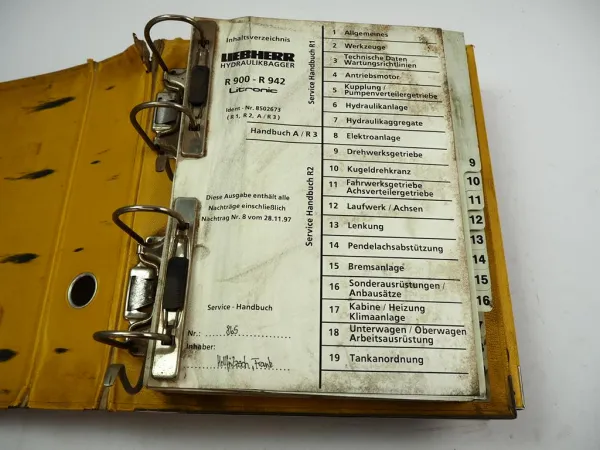 Inhaltsverzeichnis
LIEBHERR
HYDRAULIKBAGGER
R 900 - R 942
Litronic
Ident - Nr. 8502673
( R 1, R 2, A / R 3 )
Handbuch A / R 3
Diese Ausgabe enthält alle
Nachträge einschließlich
Nachtrag Nr. 8 vom 28.11.97
Service - Handbuch
Nr.: 865
Inhaber: Frank
Service Handbuch R1
Service Handbuch R2
1 Allgemeines
2 Werkzeuge
3 Technische Daten
Wartungsrichtlinien
4 Antriebsmotor
5 Kupplung /
Pumpenverteilergetriebe
6 Hydraulikanlage
7 Hydraulikaggregate
8 Elektroanlage
9 Drehwerksgetriebe
10 Kugeldrehkranz
11 Fahrwerksgetriebe
Achsverteilergetriebe
12 Laufwerk / Achsen
13 Lenkung
14 Pendelachsabstützung
15 Bremsanlage
16 Sonderausrüstungen /
Anbausätze
17 Kabine / Heizung
Klimaanlage
18 Unterwagen / Oberwagen
Arbeitsausrüstung
19 Tankanordnung
9
10
11
12
13
14
15
16